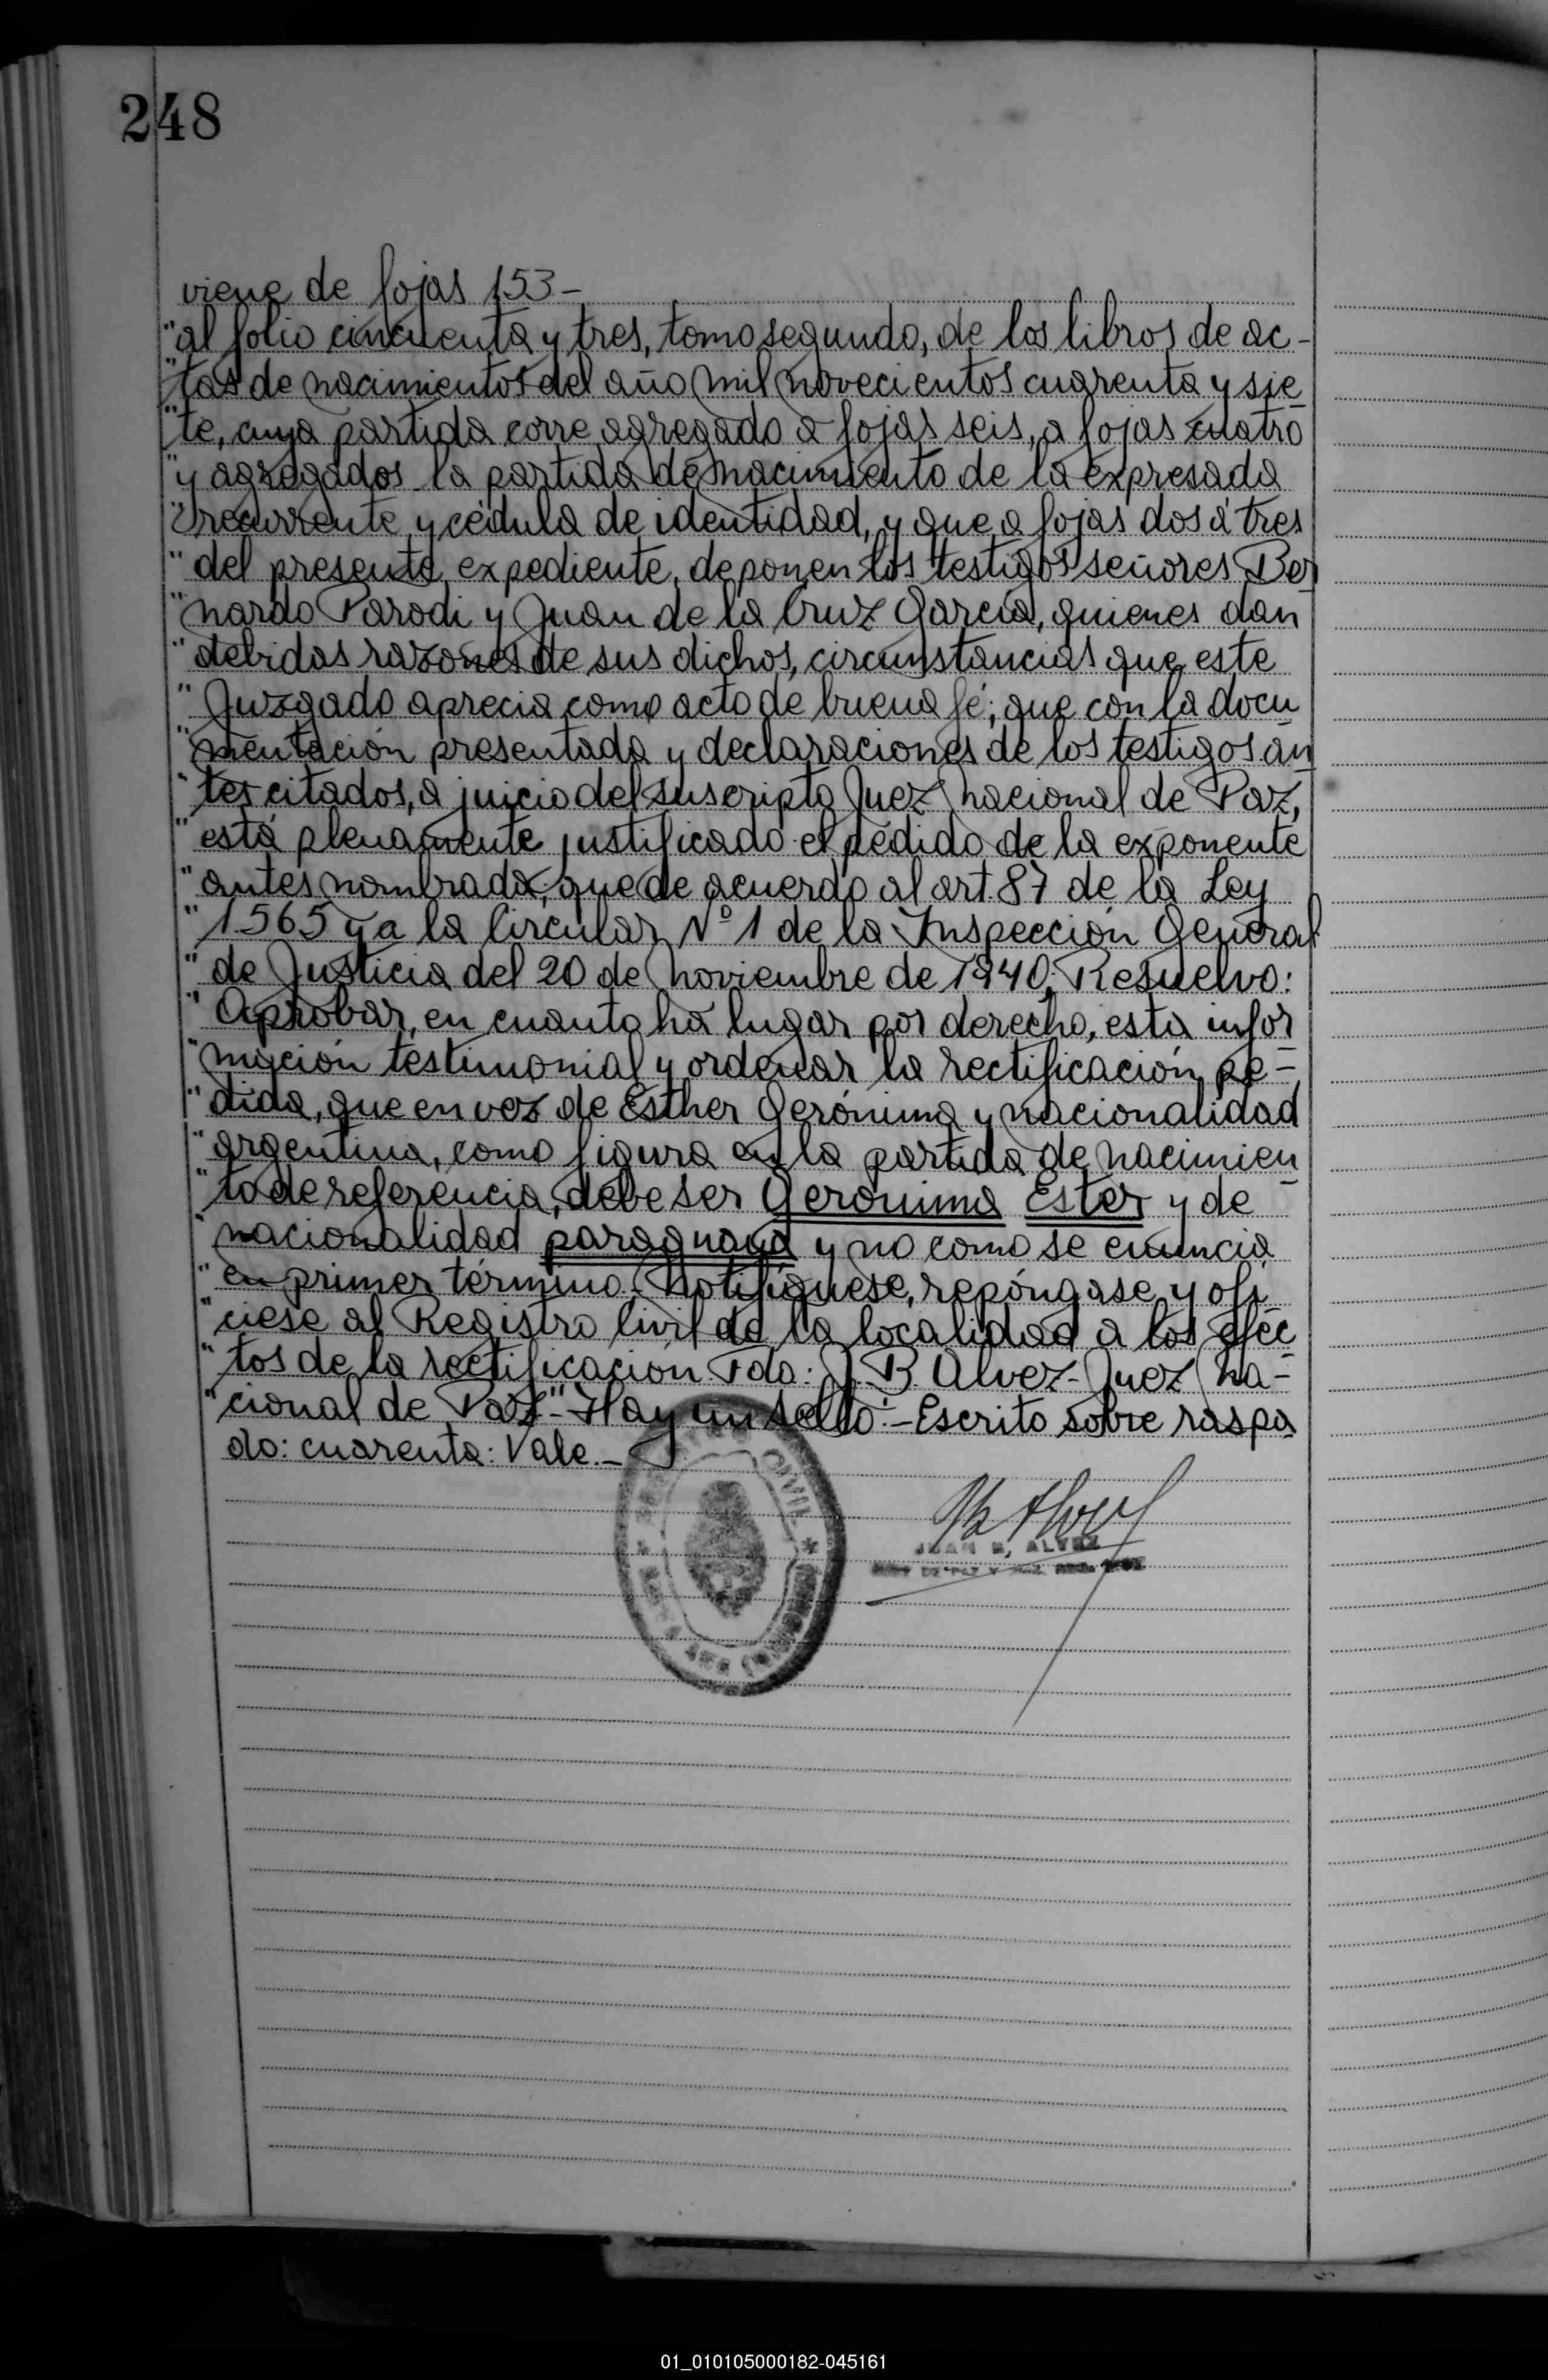 248
viene de fojas 153-
"al folio cincuenta y tres, tomo segundo, de los libros de ac-
"tas de nacimientos del año mil novecientos cuarenta y sie
"te, cuya partida corre agregado a fojas seis, a fojas cuatro
"y agregados la partida de nacimiento de la expresada
"recurrente y cédula de identidad, y que a fojas dos á tres
"del presente expediente, deponen los testigos señores Ber
"nardo Parodi y Juan de la Cruz Garcia, quienes dan
"debidas razones de sus dichos, circunstancias que este
"Juzgado aprecia como acto de buena fé; que con la docu
"mentación presentada y declaraciones de los testigos an
"tes citados, a juicio del suscripto Juez nacional de Paz,
"está plenamente justificado el pedido de la exponente
"antes nombrada; que de acuerdo al art. 87 de la Ley
"1565 y a la Circular Nº 1 de la Inspección General
"de Justicia del 20 de noviembre de 1940; Resuelvo:
"Aprobar, en cuanto há lugar por derecho, esta infor
"mación testimonial y ordenar la rectificación pe-
"dida, que en vez de Esther Gerónima y nacionalidad
"argentina, como figura en la partida de nacimien
"to de referencia, debe ser Gerónima Ester y de
"nacionalidad paraguaya y no como se enuncia
"en primer término. Notifíquese, repóngase y ofi
"ciese al Registro Civil de la localidad a los efec
"tos de la rectificación Fdo: J. B. Alvez - Juez Na-
"cional de Paz"- Hay un sello:- Escrito sobre raspa
do: cuarenta: Vale.-
CIVIL
JUAN B. ALVEZ
01_010105000182-045161